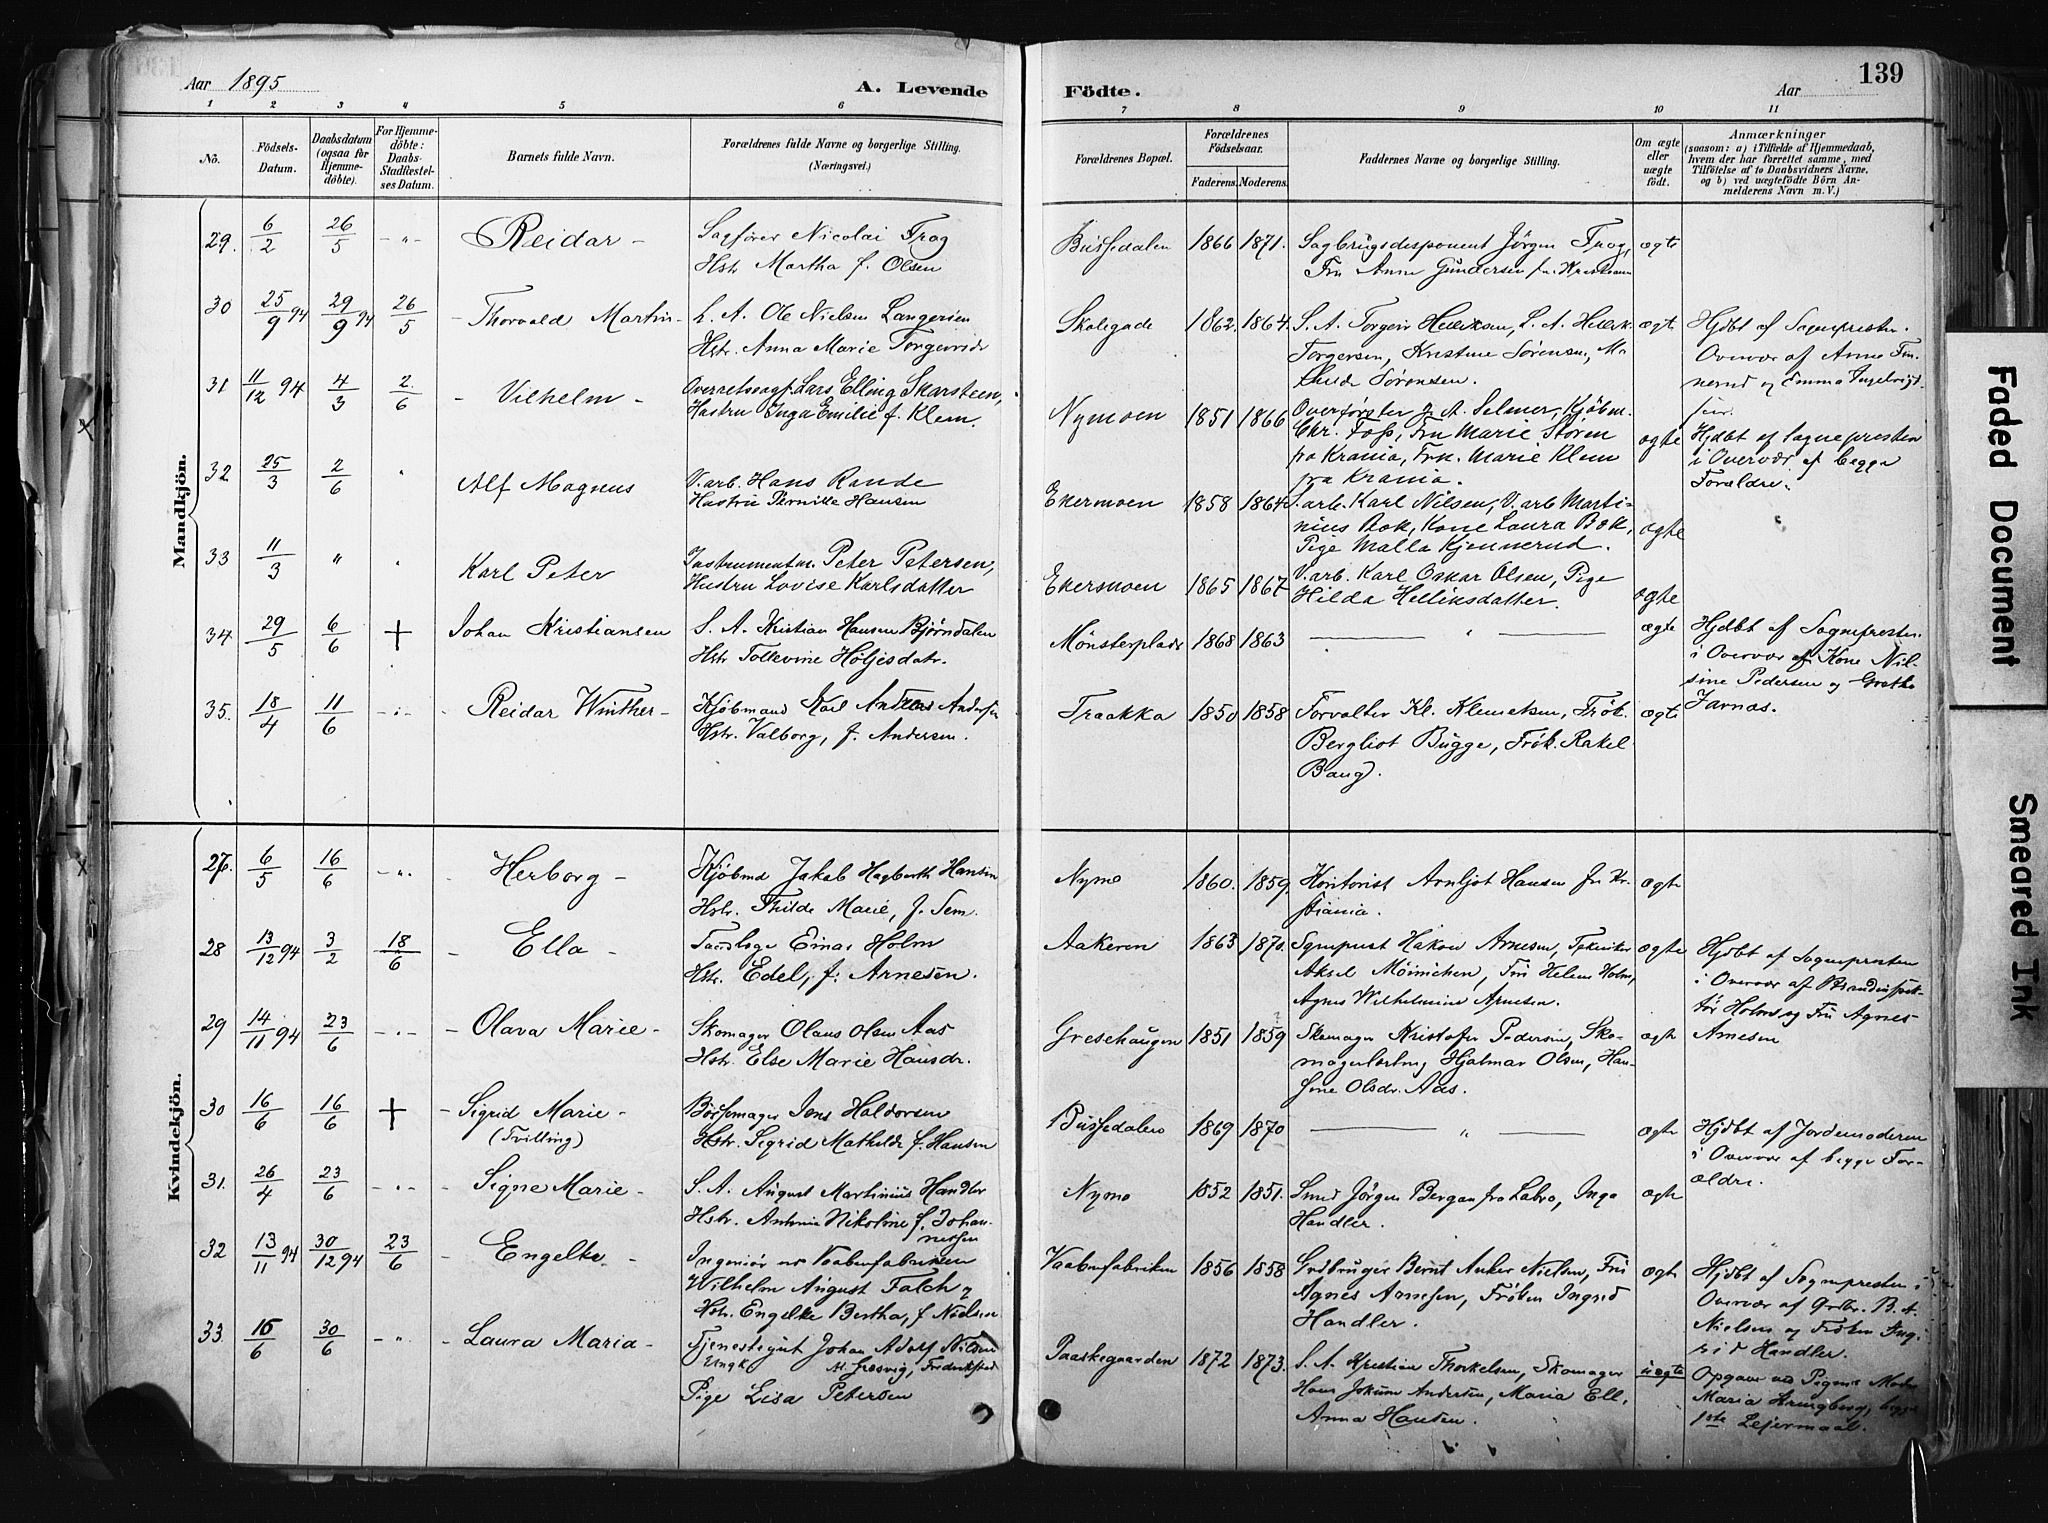 Aar 1895
A. Levende
Födte.
Aar
139
1 2 3 4 5 6 7 8 9 10 11
No.
Födsels-Datum.
Daabsdatum (ogsaa for Hjemme-döbte).
For Hjemme-döbte: Daabs-Stadfæstel-ses Datum.
Barnets fulde Navn.
Forældrenes fulde Navne og borgerlige Stilling. (Næringsvei.)
Forældrenes Bopæl.
Forældrenes Födselsaar.
Faderens. Moderens.
Faddernes Navne og borgerlige Stilling.
Om ægte eller uægte födt.
Anmærkninger
(saasom: a) i Tilfælde af Hjemmedaab, hvem der har forrettet samme, med Tilföielse af to Daabsvidners Navne, og b) ved uægtefödte Börn An-melderens Navn m. V.)
Mandkjön.
29. 6/2 26/5 - " - Reidar - Sagfører Nicolai Frog Bussedalen 1866 1871. Sagbrugsdisponent Jörgen Frog, ægte
Hstr Martha f. Olsen Fru Anna Gundersen fra
30 25/9 94 29/9 94 26/5 - Thorvald Martin - Ole Nielsen Skolegade 1862. 1864. S. A. Torgeir ægte Hjdbt af Sognepresten.
Hstr. Anna Marie Torgersen, Kristine Sørensen, Overvær af Anne
Sørensen. Emma
31 11/12 94 4/3 2/6 - Vilhelm - Lars Elling Skarsteen, Nymoen 1851 1866 A. Selmer, Kjøbm. ægte
Hustru Inga Emilie f. Klem. Chr. Foss, Fru Marie Støren
fra Krania, Frk. Marie Klem Hjdbt af Sognepresten
fra Krania. i Overvær af begge
Forældre.
32 25/3 2/6 " Alf Magnus V.arb. Hans Rande Ekermoen 1858 1864. S.arb. Karl Nilsen, V. arb Marti- ægte
Hustru Pernille Hansen nius Bok, Kone Laura Bok,
Pige Malla Kjennerud.
33 11/3 " " Karl Peter Instrumentm. Peter Petersen, Ekermoen 1865 1867 V.arb. Karl Oskar Olsen, Pige ægte
Hustru Lovise Karlsdatter Hilda Helliksdatter.
34. 29/5 6/6 + Johan Kristiansen S. A. Kristian Hansen Bjørndalen Mønsterplads 1868 1863 " ægte Hjdbt af Sognepresten
Hstr Tollevine Høljesdatr. i Overvær af Kone Nil-
sine Pedersen og Grethe
Jarnæs.
35. 18/4 11/6 - " - Reidar Winther - Kjøbmand Karl Andreas Andersen Traakka 1850 1858 Forvalter Kl. Klemetsen, Frøk. ægte
Hstr. Valborg, f. Andersen. Bergliot Bugge, Frøk. Rakel
Baug.
Kvindekjön.
27. 6/5 16/6 - " - Herborg - Kjøbmd Jakob Hagbarth Hansen Nymo 1860. 1859. Kontorist Arnljot Hansen fra Kr- ægte
Hstr. Thilde Marie, f. Sem. stiania.
28 13/12 94 3/2 18/6 - Ella - Tandlæge Einar Holm Aakeren 1863 1870. Sogneprest Håkon Arnesen, Tekniker ægte Hjdbt af Sognepresten
Hstr. Edel, f. Arnesen. Aksel Møinichen, Fru Helene Holm, i Overvær af Brandinspek-
Agnes Wilhelmine Arnesen. tør Holm og Fru Agnes
Arnesen
29 14/11 94 23/6 - " - Olava Marie - Skomager Olaus Olsen Aas Gresehaugen 1851 1859 Skomager Kristofer Pedersen, Sko- ægte
Hstr. Else Marie Hansdr. magerlærling Hjalmar Olsen, Han-
sine Olsdr. Aas.
30 16/6 16/6 + - Sigrid Marie - Børsemager Jens Haldorsen Bussedalen 1869 1870 " ægte Hjdbt af Jordemoderen
(Tvilling) Hstr. Sigrid Mathilde f. Hansen i Overvær af begge For-
ældre.
31. 26/4 23/6 - " - Signe Marie - S. A. August Martinius Handler Nymo 1852 1851. Smed Jörgen Bergan fra Labro, Inga ægte
Hstr. Antonia Nikoline f. Johan- Handler.
nessen
32 13/11 94 30/12 94 23/6 - Engelke - Ingeniør ved Vaabenfabriken Vaabenfabriken 1856 1858 Grdbruger Bernt Anker Nielsen, Fru ægte Hjdbt af Sognepresten i
Wilhelm August Falch og Agnes Arnesen, Frøken Ingrid Overvær af Grdbr. B. A.
Hstr. Engelke Bertha, f. Nielsen Handler. Nielsen og Frøken Ing-
rid Handler.
33. 16/6 30/6 - " - Laura Maria - Tjenestegut Johan Adolf Nilsen Paaskegaarden 1872 1873. S. A. Kristian Thorkelsen, Skomager uægte Opgave ved Pigens Moder
Ungk. Gresvig, Fredrikstad Hans Jokum Andersen, Maria Ell, Maria Kringberg, begges
Pige Lisa Petersen Anna Hansen. 1ste Leiermaal.
Faded Document
Smeared Ink